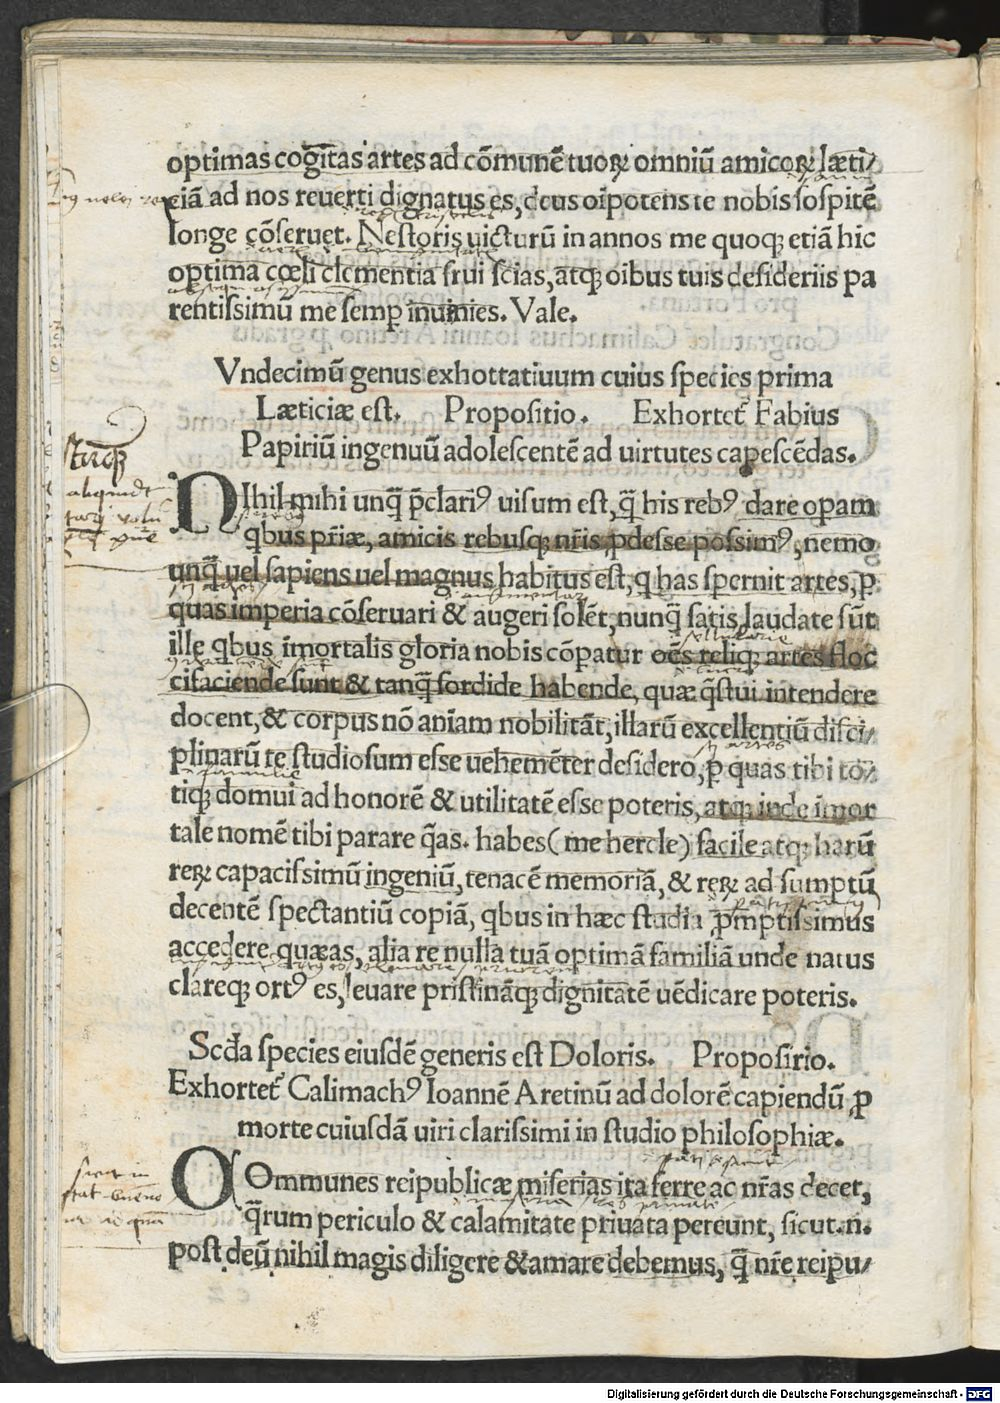 optimas cogītas artes ad cōmunē tuoꝝ omniū amicoꝝ læti/
ciā ad nos reuerti dignatus es, deus oīpotens te nobis sospitē
longe cōseruet. Nestoris uicturū in annos me quoqꝫ etiā hic
optima cœli clementia frui scias, atqꝫ oībus tuis desideriis pa
rentissimū me semꝑ inuinies. Vale.
Vndecimū genus exhottatiuum cuius species prima
Læticiæ est. Propositio. Exhortet᷑ Fabius
Papiriū ingenuū adolescentē ad uirtutes capescēdas.
NIhil mihi unq̄ p̄clariꝰ uisum est, q̄ his rebꝰ dare oꝑam
qbus pr̄iæ, amicis rebusqꝫ nr̄is ꝓdesse possimꝰ, nemo
unq̄ uel sapiens uel magnus habitus est, q has spernit artes, ꝑ
quas imperia cōseruari & augeri solēt, nunq̄ satis laudate sūt
ille qbus īmortalis gloria nobis cōꝑatur oēs reliqꝫ artes floc
cifaciende sunt & tanq̄ sordide habende, quæ q̄stui intendere
docent, & corpus nō anīam nobilitāt, illarū excellentiū disci/
plinarū te studiosum esse uehemēter desidero, ꝑ quas tibi to/
tiqꝫ domui ad honorē & utilitatē esse poteris, atqꝫ inde īmor
tale nomē tibi parare q̄as. habes (me hercle) facile atqꝫ harū
reꝝ capacissimū ingeniū, tenacē memoriā, & reꝝ ad sumptū
decentē spectantiū copiā, qbus in hæc studia ꝓmptissimus
accedere quæas, alia re nulla tuā optimā familiā unde natus
clareqꝫ ortꝰ es, leuare pristināqꝫ dignitatē uēdicare poteris.
Scd̄a species eiusdē generis est Doloris. Proposirio.
Exhortet᷑ Calimachꝰ Ioannē Aretinū ad dolorē capiendū ꝓ
morte cuiusdā uiri clarissimi in studio philosophiæ.
COmmunes reipublicæ miserias ita ferre ac nr̄as decet,
q̄rum periculo & calamitate priuata pereunt, sicut .n.
post deū nihil magis diligere & amare debemus, q̄ nr̄e reipu/
Digitalisierung gefördert durch die Deutsche Forschungsgemeinschaft - DFG